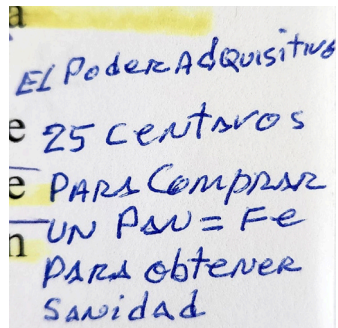 a
El Poder Adquisitivo
e 25 centavos
e PARA Comprar
n UN PAN = Fe
PARA obtener
SANidad